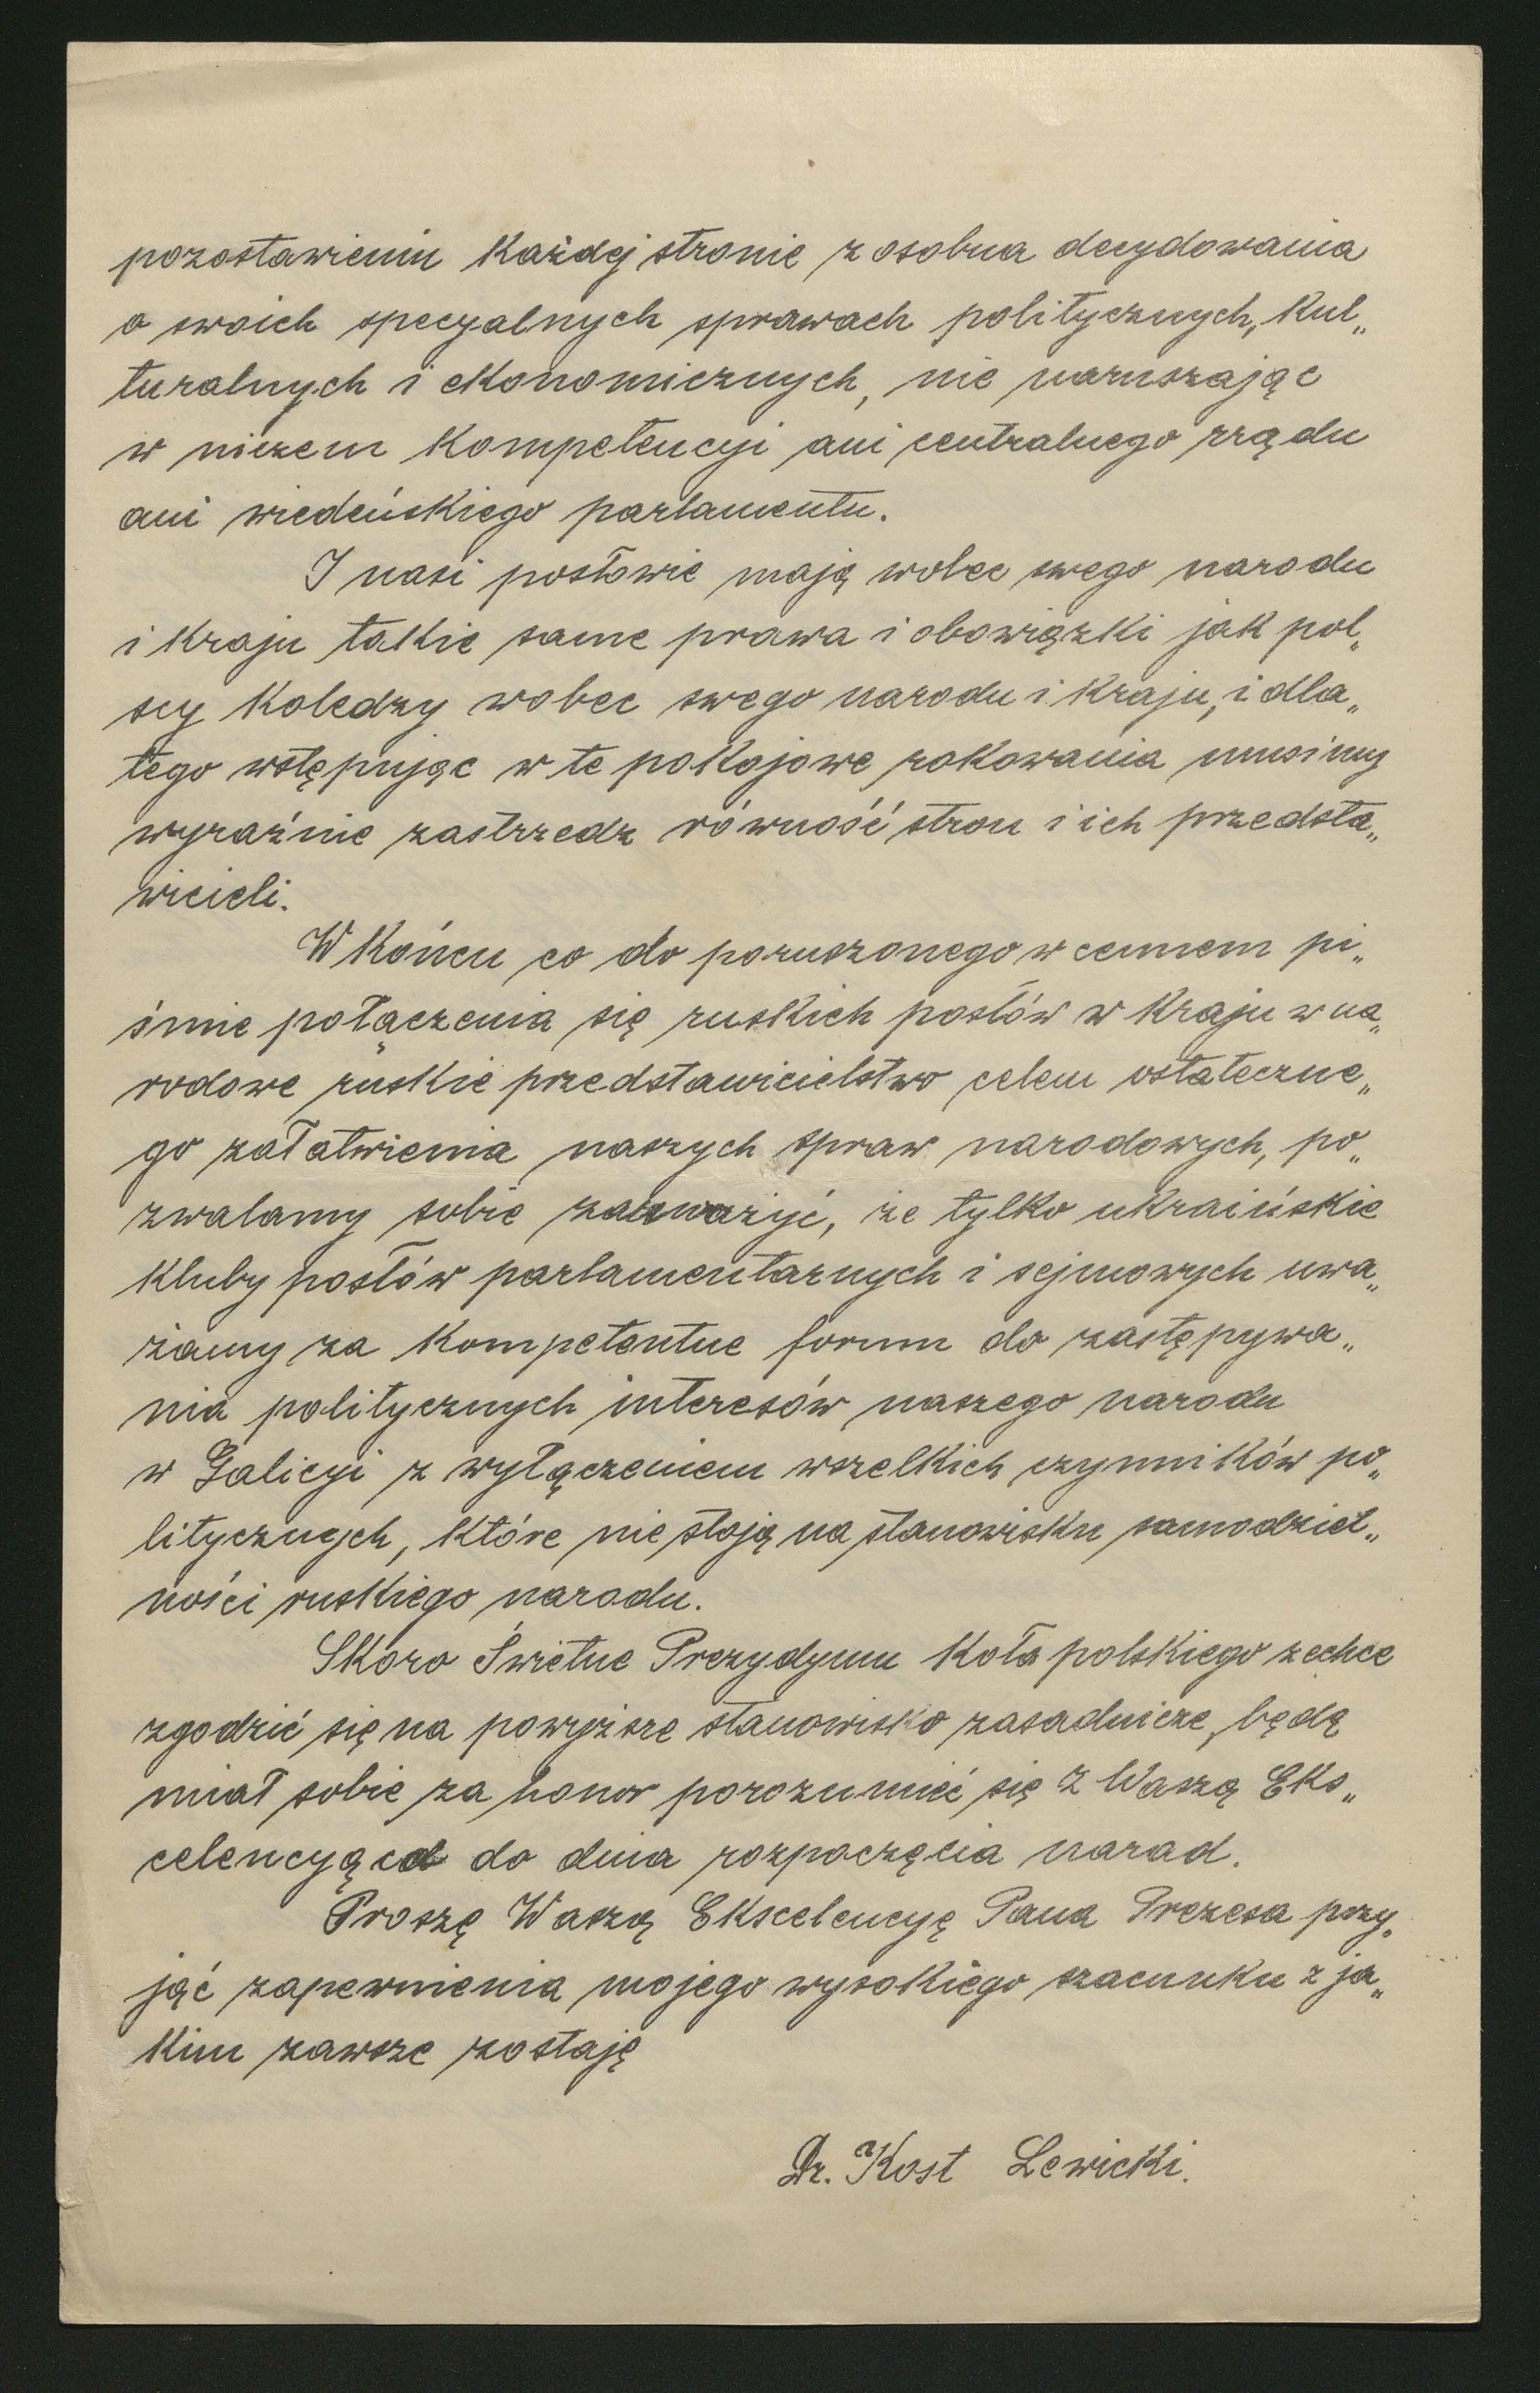 pozostawieniu każdej stronie z osobna decydowania
o swoich specyalnych sprawach politycznych, kul„
turalnych i ekonomicznych, nie naruszając
w niczem kompetencyi ani centralnego rządu
ani wiedeńskiego parlamentu.
I nasi posłowie mają wobec swego narodu
i kraju takie same prawa i obowiązki jak pol„
scy koledzy wobec swego narodu i kraju, i dla„
tego wstępując w te pokojowe rokowania musimy
wyraźnie zastrzedz równość stron i ich przedsta„
wicieli.
W końcu co do poruszonego w cennem pi„
śmie połączenia się ruskich posłów w kraju w na„
rodowe ruskie przedstawicielstwo celem ostateczne„
go załatwienia naszych spraw narodowych, po„
zwalamy sobie zauważyć, że tylko ukraińskie
kluby posłów parlamentarnych i sejmowych uwa„
żamy za kompetentne forum do zastępywa„
nia politycznych interesów naszego narodu
w Galicyi z wyłączeniem wszelkich czynników po„
litycznych, które nie stoją na stanowisku samodziel„
ności ruskiego narodu.
Skoro Świetne Prezydyum Koła polskiego zechce
zgodzić się na powyższe stanowisko zasadnicze, będę
miał sobie za honor porozumieć się z Waszą Eks„
celencyą co do dnia rozpoczęcia narad.
Proszę Waszą Ekscelencyę Pana Prezesa przy„
jąć zapewnienia mojego wysokiego szacunku z ja„
kim zawsze zostaję
Dr. Kost Lewicki.